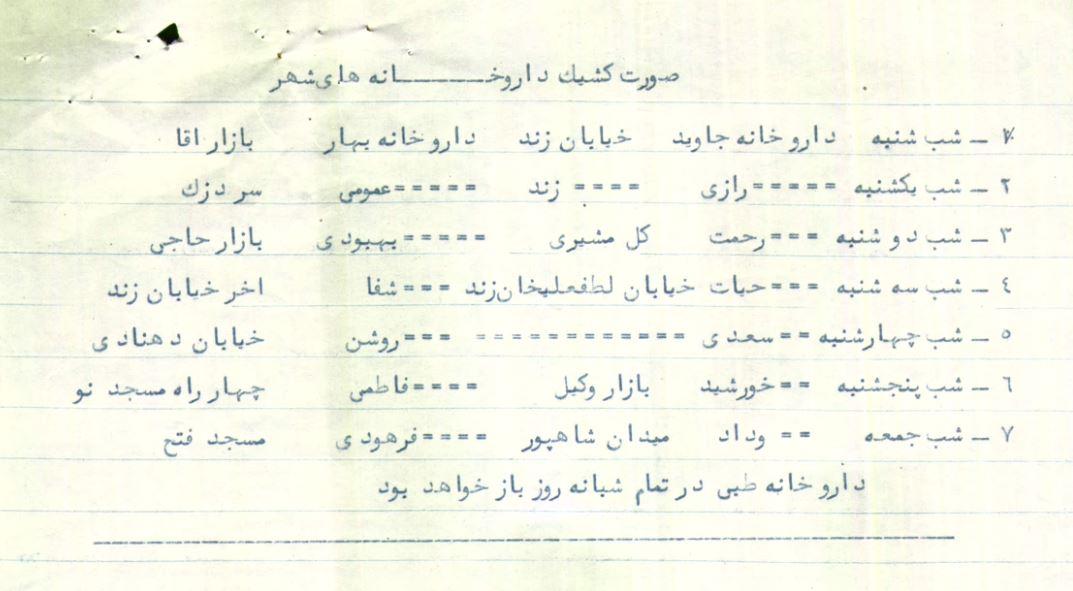 صورت کشیك داروخـــــــــانه های‌شهر
۱ ـ شب شنبه دارو خانه جاوید خیابان زند دارو خانه بهار بازار اقا
۲ ـ شب یکشنبه =====رازی ==== زند =====عمومی سر دزك
۳ ـ شب دو شنبه ===رحمت کل مشیری =====بهبودی بازار حاجی
٤ ـ شب سه شنبه ===حیات خیابان لطفعلیخان‌زند ===شفا اخر خیابان زند
٥ ـ شب چهارشنبه ==سعدی ============ ===روشن خیابان دهنادی
٦ ـ شب پنجشنبه ==خورشید بازار وکیل ====فاطمی چهار راه مسجد نو
۷ ـ شب جمعه == وداد میدان شاهپور ====فرهودی مسجد فتح
دارو خانه طبی در تمام شبانه روز باز خواهد بود